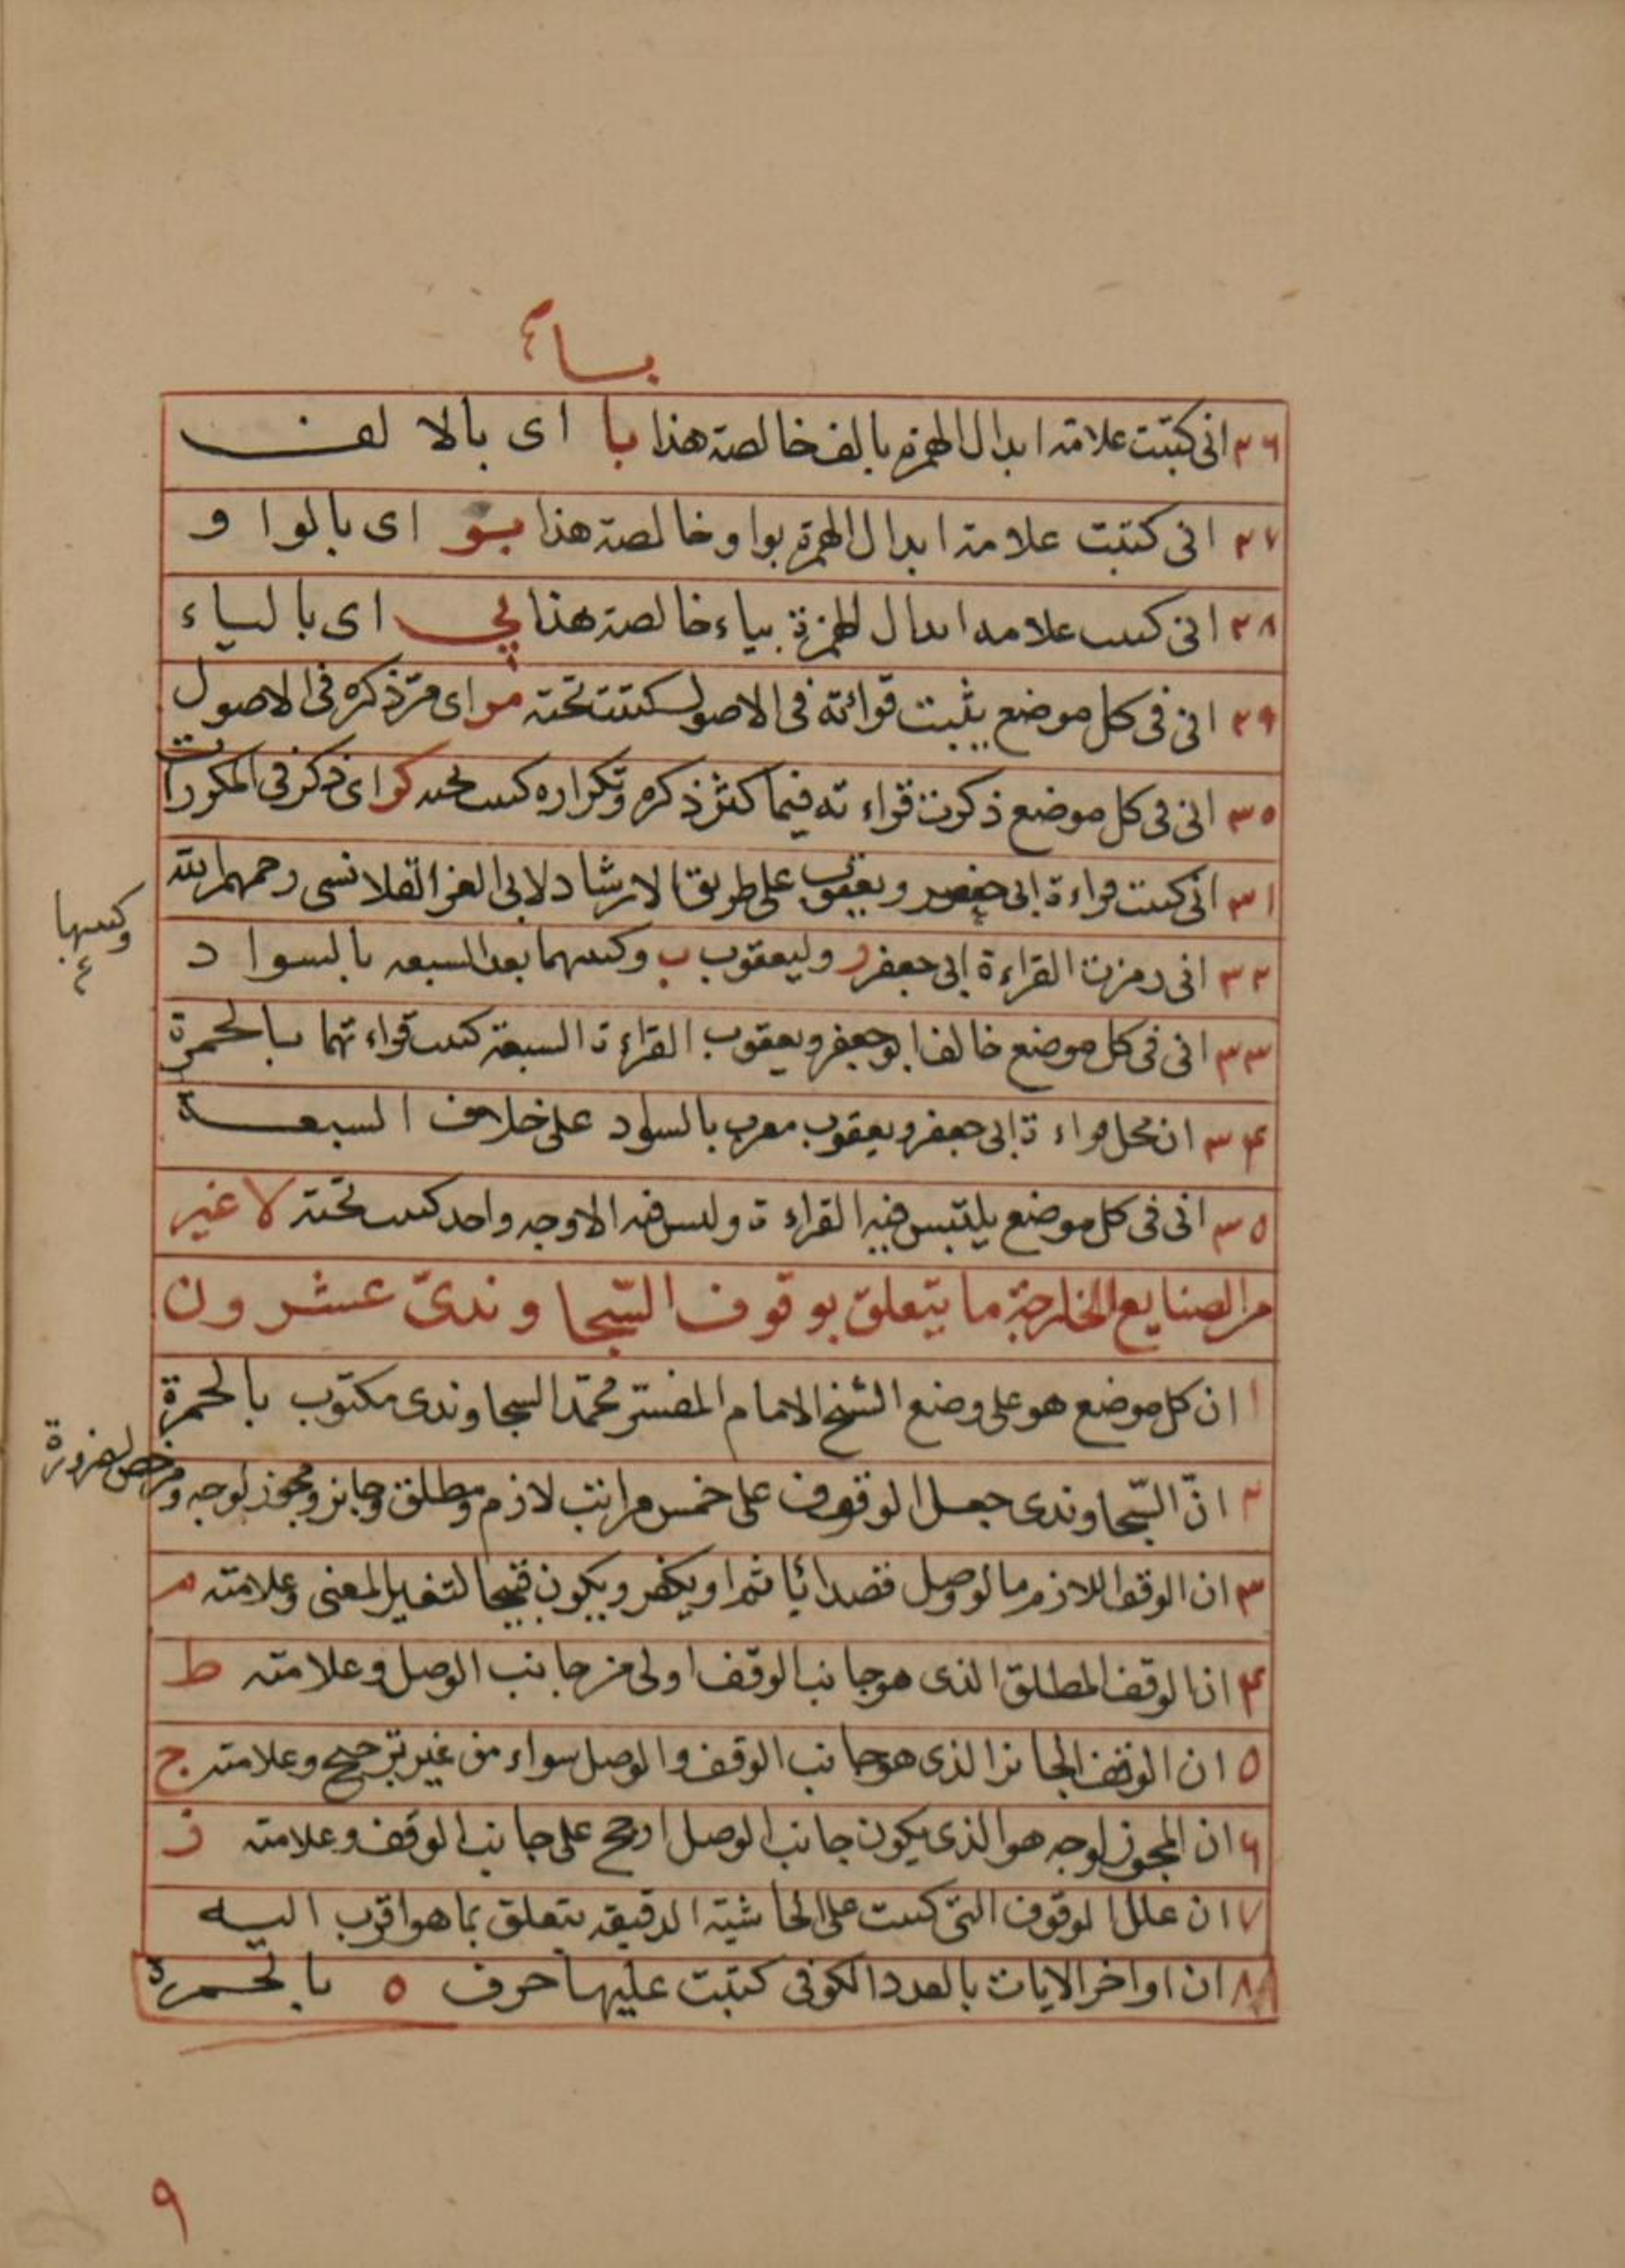 بسا
٢٦ انى كتبت علامة ابدال الهمزة بالف خالصة هذا با اى بالالف
٢٧ انى كتبت علامة ابدال الهمزة بواو خالصة هذا بو اى بالواو
٢٨ انى كتبت علامة ابدال الهمزة بياء خالصة هذا بي اى بالياء
٢٩ انى فى كل موضع يثبت قرائته فى الاصول كتبت تحته مر اى مرّ ذكره فى الاصول
٣٠ انى فى كل موضع ذكرت قراءته فيما كثر ذكره وتكراره كتبت تحته كر اى ذكر فى المكررات
٣١ انى كتبت قراءة ابى جعفر ويعقوب على طريق الارشاد لابى العز القلانسى رحمهم الله
٣٢ انى رمزت القراءة ابى جعفر ر وليعقوب ب وكتبتهما بعد السبعه بالسواد
وكتبتها
٣٣ انى فى كل موضع خالف ابو جعفر ويعقوب القراءة السبعة كتبت قراءتهما بالحمرة
٣٤ ان محل قراءة ابى جعفر ويعقوب معرب بالسواد على خلاف السبعة
٣٥ انى فى كل موضع يلتبس فيه القراءة وليس فيه الا وجه واحد كتبت تحته لا غير
من الصنايع الخارجة ما يتعلق بوقوف السّجاوندىّ عشرون
١ ان كل موضع هو على وضع الشيخ الامام المفسّر محمّد السجاوندى مكتوب بالحمرة
٢ انّ السّجاوندى جعل الوقوف على خمس مراتب لازم ومطلق وجايز ومجوز لوجه ومرخص لضرورة
٣ ان الوقف اللازم ما لو وصل قصدا يأثم او يكفر ويكون قبيحا لتغير المعنى وعلامته م
٤ ان الوقف المطلق الذى هو جانب الوقف اولى من جانب الوصل وعلامته ط
٥ ان الوقف الجائز الذى هو جانب الوقف والوصل سواء من غير ترجيح وعلامته ج
٦ ان المجوز لوجه هو الذى يكون جانب الوصل ارجح على جانب الوقف وعلامته ز
٧ ان علل الوقوف التى كتبت على الحاشية الدقيقه يتعلق بما هو اقرب اليه
٨ ان اواخر الايات بالعدد الكوفى كتبت عليها حرف ه بالحمرة
٩